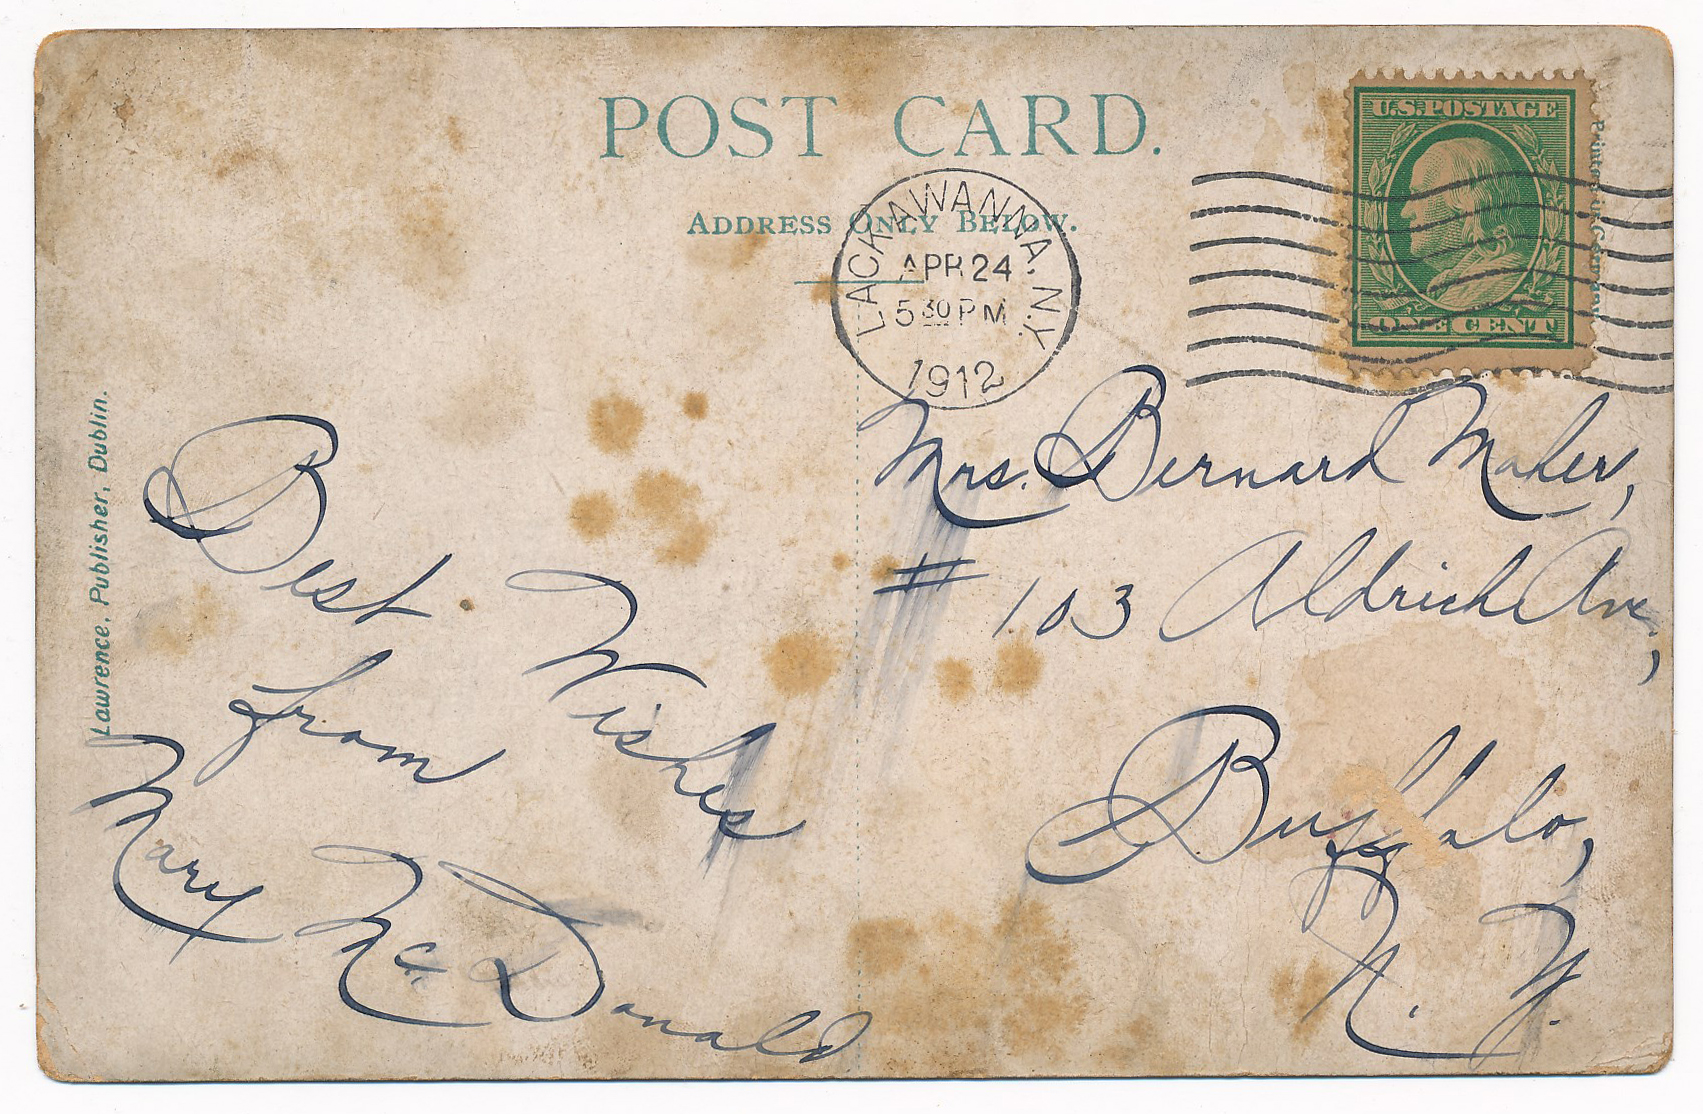 POST CARD.
ADDRESS ONLY BELOW.
U.S. POSTAGE
ONE CENT
Printed in Germany
LACKAWANNA. N.Y.
APR 24
5 30 PM
1912
Lawrence, Publisher, Dublin.
Best Wishes
from
Mary McDonald
Mrs. Bernard Maher,
# 103 Aldrich Ave,
Buffalo,
N. Y.